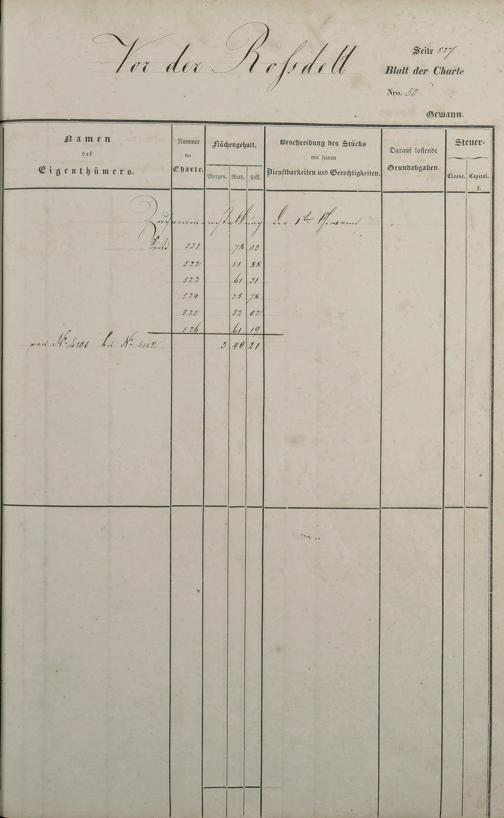 Vor der Roßdell
Seite 527
Blatt der Charte
Nro. 50
Gewann.
Namen
des
Eigenthümers.
Nummer
der
Charte.
Flächengehalt.
Morgen. Ruth. Fß.
Beschreibung des Stücks
mit seinen
Dienstbarkeiten und Gerechtigkeiten.
Darauf lastende
Grundabgaben.
Steuer-
Classe. Capital.
fl.
Zusammenstellung der 1ten Gewann
Seite 521 78 03
522 51 88
523 61 31
524 35 78
525 52 02
526 61 19
von No bis No
3 40 21